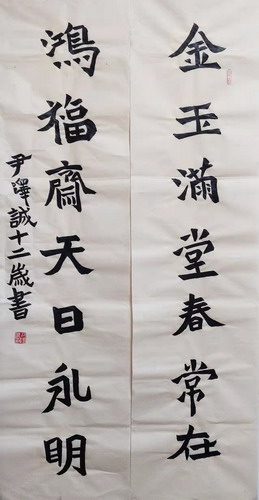 金玉滿堂春常在
鴻福齋天日永明
尹澤誠十二歲書